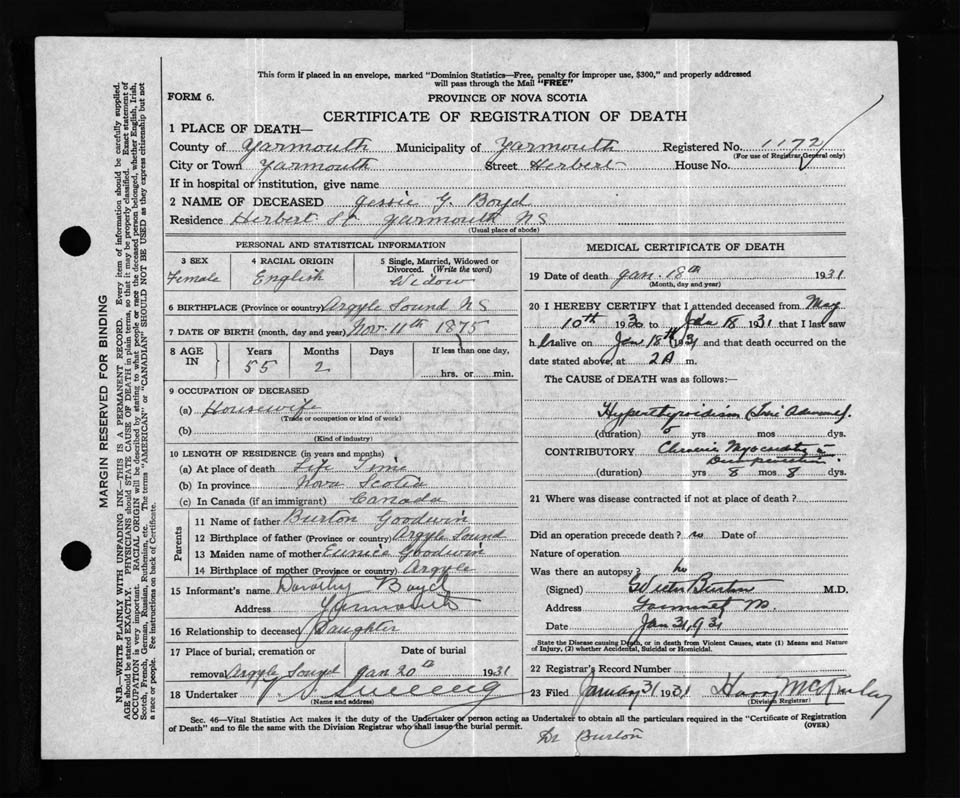 This form if placed in an envelope, marked "Dominion Statistics—Free, penalty for improper use, $300," and properly addressed
will pass through the Mail "FREE"
FORM 6.
PROVINCE OF NOVA SCOTIA
CERTIFICATE OF REGISTRATION OF DEATH
1 PLACE OF DEATH—
County of Yarmouth Municipality of Yarmouth Registered No. 1172
(For use of Registrar General only)
City or Town Yarmouth Street Herbert House No.
If in hospital or institution, give name
2 NAME OF DECEASED Jessie G. Boyd
Residence Herbert St Yarmouth NS
(Usual place of abode)
PERSONAL AND STATISTICAL INFORMATION
3 SEX 4 RACIAL ORIGIN 5 Single, Married, Widowed or
Divorced. (Write the word)
Female English Widow
6 BIRTHPLACE (Province or country) Argyle Sound NS
7 DATE OF BIRTH (month, day and year) Nov. 11th 1875
8 AGE IN Years Months Days If less than one day,
55 2 hrs. or min.
9 OCCUPATION OF DECEASED
(a) Housewife
(Trade or occupation or kind of work)
(b)
(Kind of industry)
10 LENGTH OF RESIDENCE (in years and months)
(a) At place of death Life Time
(b) In province Nova Scotia
(c) In Canada (if an immigrant) Canada
Parents
11 Name of father Burton Goodwin
12 Birthplace of father (Province or country) Argyle Sound
13 Maiden name of mother Eunice Goodwin
14 Birthplace of mother (Province or country) Argyle
15 Informant's name Dorothy Boyd
Address Yarmouth
16 Relationship to deceased Daughter
17 Place of burial, cremation or Date of burial
removal Argyle Sound Jan 20th 1931
18 Undertaker V. S. Sweeny
(Name and address)
MEDICAL CERTIFICATE OF DEATH
19 Date of death Jan. 18th 1931
(Month, day and year)
20 I HEREBY CERTIFY that I attended deceased from May
10th 1930 to Jan 18 1931 that I last saw
h er alive on Jan 18th 1931 and that death occurred on the
date stated above, at 2 A m.
The CAUSE of DEATH was as follows:—
Hyperthyroidism (Toxic
(duration) 5 yrs mos dys.
CONTRIBUTORY Chronic Myocarditis
(duration) 8 yrs 8 mos dys.
21 Where was disease contracted if not at place of death?
Did an operation precede death? no Date of
Nature of operation
Was there an autopsy? no
(Signed) Burton M.D.
Address
Date Jan 31, 931
State the Disease causing Death, or in death from Violent Causes, state (1) Means and Nature
of Injury, (2) whether Accidental, Suicidal or Homicidal.
22 Registrar's Record Number
23 Filed January 31 1931 Harry McKinlay
(Division Registrar)
Sec. 46—Vital Statistics Act makes it the duty of the Undertaker or person acting as Undertaker to obtain all the particulars required in the "Certificate of Registration
of Death" and to file the same with the Division Registrar who shall issue the burial permit. (OVER)
Dr Burton
MARGIN RESERVED FOR BINDING
N.B.—WRITE PLAINLY WITH UNFADING INK—THIS IS A PERMANENT RECORD. Every item of information should be carefully supplied.
AGE should be stated EXACTLY. PHYSICIANS should STATE CAUSE OF DEATH in plain terms, so that it may be properly classified. Exact statement of
OCCUPATION is very important. RACIAL ORIGIN will be described by stating to what people or race the deceased person belonged, whether English, Irish,
Scotch, French, German, Russian, Ruthenian, etc. The terms "AMERICAN" or "CANADIAN" SHOULD NOT BE USED as they express citizenship but not
a race or people. See instructions on back of Certificate.